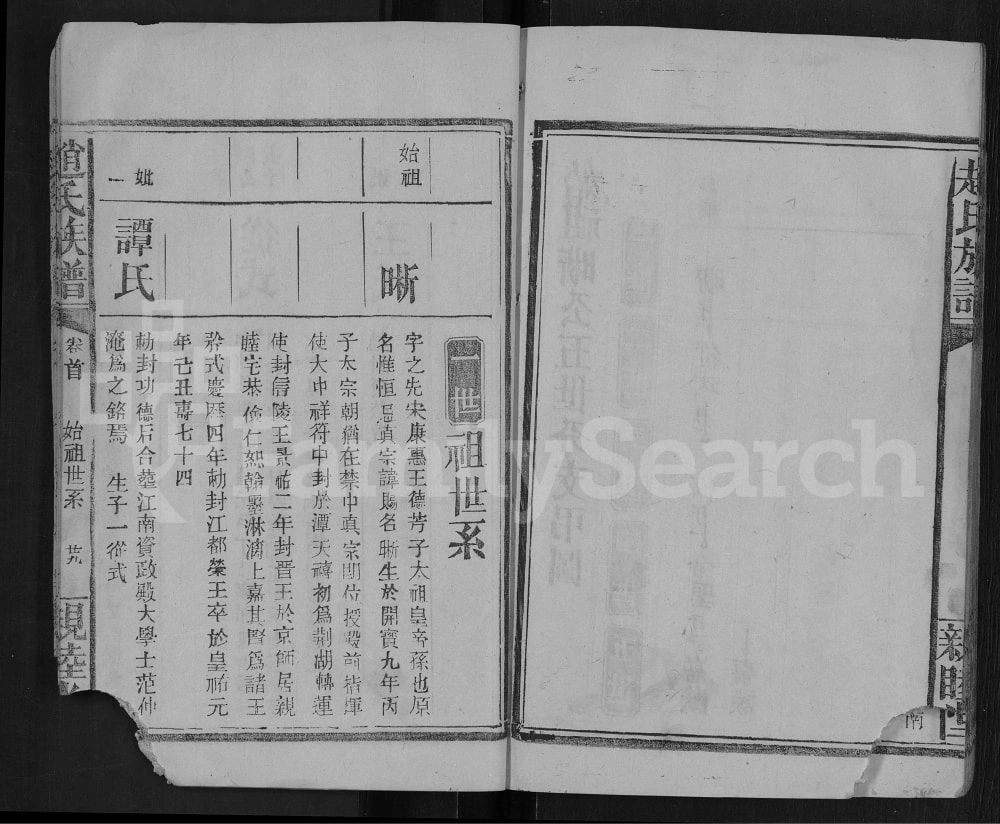 趙氏族
新睦堂
南
一世祖世系
始祖
晰
字之先宋康惠王德芳子太祖皇帝孫也原
名惟恒忌真宗諱賜名晰生於開寶九年丙
子太宗朝猶在禁中真宗卽位授殿前指揮
使大中祥符中封於潭天禧初爲荆湖轉運
使封信陵王景祐二年封晋王於京師居親
睦宅恭儉仁恕翰墨淋漓上嘉其賢爲諸王
矜式慶歷四年勅封江都榮王卒於皇祐元
年己丑壽七十四
妣
一
譚氏
勅封功德后合塟江南資政殿大學士范仲
淹爲之銘焉 生子一從式
趙氏族譜
卷首
始祖世系
廿九
親睦
FamilySearch